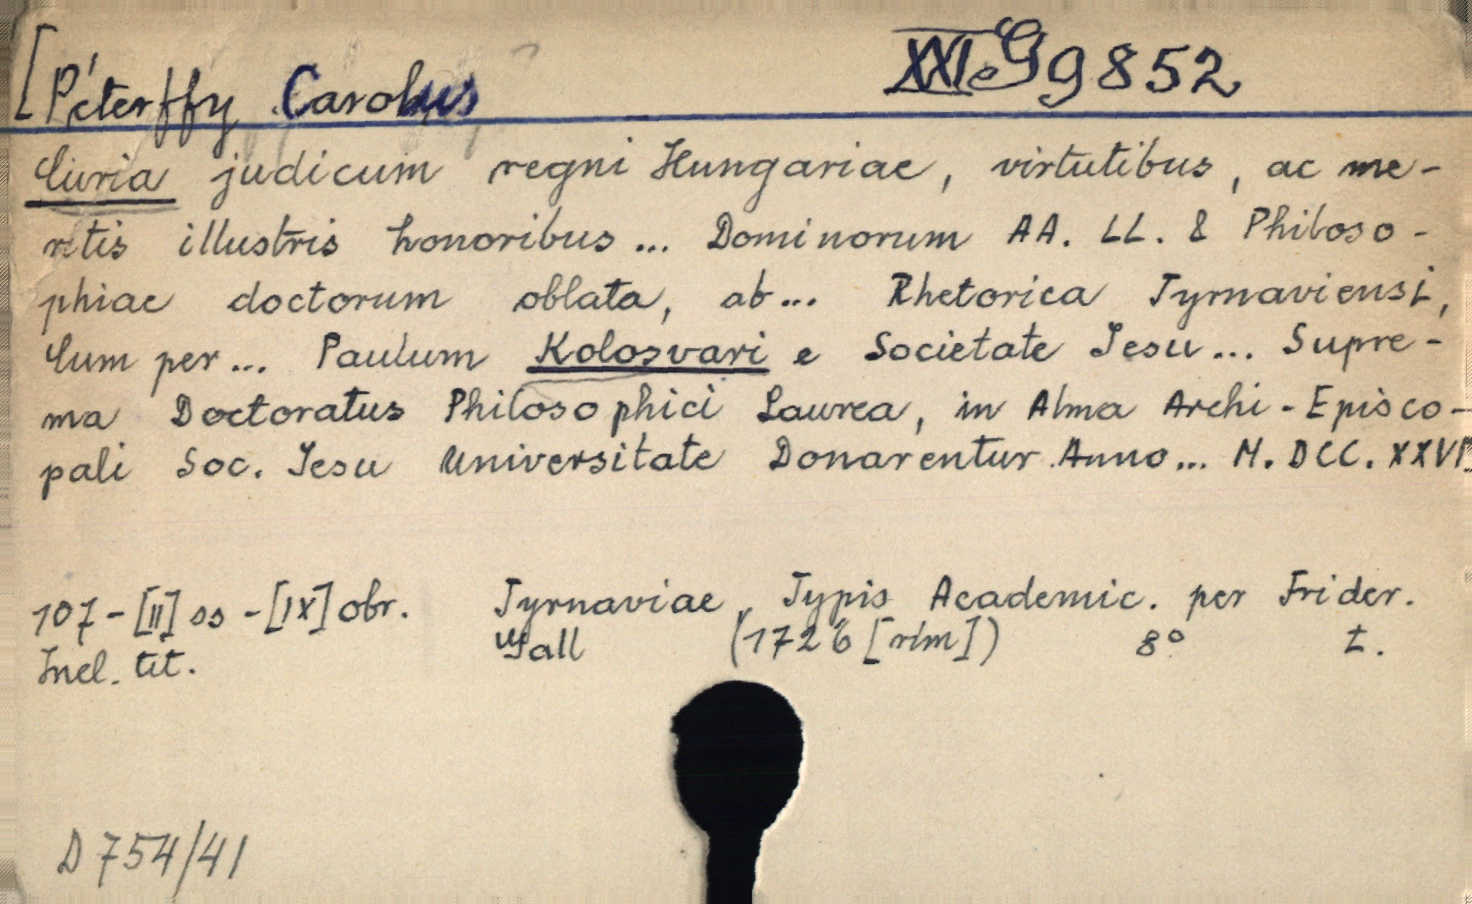 [Péterffy Carolus XXI e G 9852
Curia judicum regni Hungariae, virtutibus, ac me-
ritis illustris honoribus... Dominorum AA. LL. & Philoso-
phiae doctorum oblata, ab... Rhetorica Tyrnaviensi,
Cum per... Paulum Kolosvari e Societate Jesu... Supre-
ma Doctoratus Philosophici Laurea, in Alma Archi-Episco-
pali Soc. Jesu Universitate Donarentur Anno... M.DCC.XXVI]
107-[II] ss -[IX] obr. Tyrnaviae, Typis Academic. per Frider.
Gall (1726 [rím]) 8° t.
Incl. tit.
D 754/41